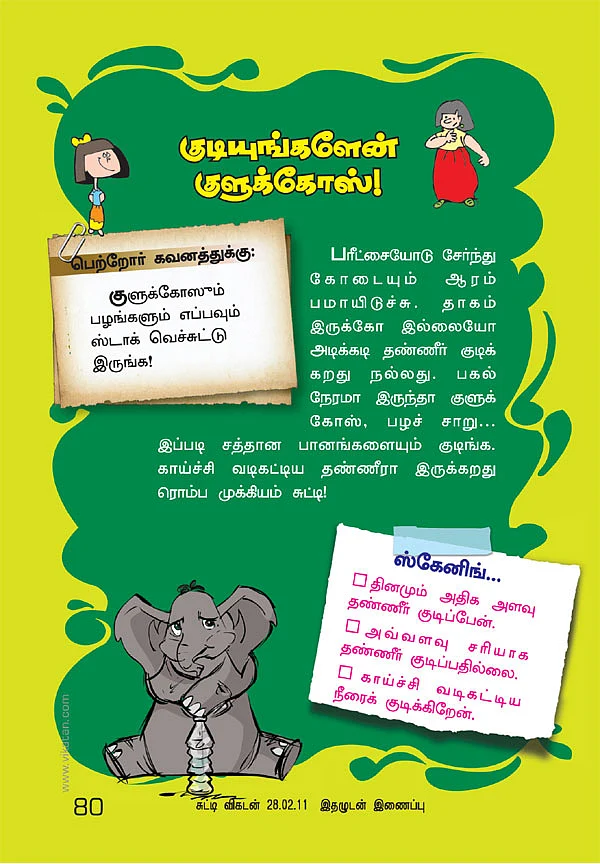 குடியுங்களேன்
குளுக்கோஸ்!
பெற்றோர் கவனத்துக்கு:
குளுக்கோஸும்
பழங்களும் எப்பவும்
ஸ்டாக் வெச்சுட்டு
இருங்க!
பரீட்சையோடு சேர்ந்து
கோடையும் ஆரம்
பமாயிடுச்சு. தாகம்
இருக்கோ இல்லையோ
அடிக்கடி தண்ணீர் குடிக்
கறது நல்லது. பகல்
நேரமா இருந்தா குளுக்
கோஸ், பழச் சாறு...
இப்படி சத்தான பானங்களையும் குடிங்க.
காய்ச்சி வடிகட்டிய தண்ணீரா இருக்கறது
ரொம்ப முக்கியம் சுட்டி!
ஸ்கேனிங்...
☐ தினமும் அதிக அளவு
தண்ணீர் குடிப்பேன்.
☐ அவ்வளவு சரியாக
தண்ணீர் குடிப்பதில்லை.
☐ காய்ச்சி வடிகட்டிய
நீரைக் குடிக்கிறேன்.
www.vikatan.com
80
சுட்டி விகடன் 28.02.11 இதழுடன் இணைப்பு